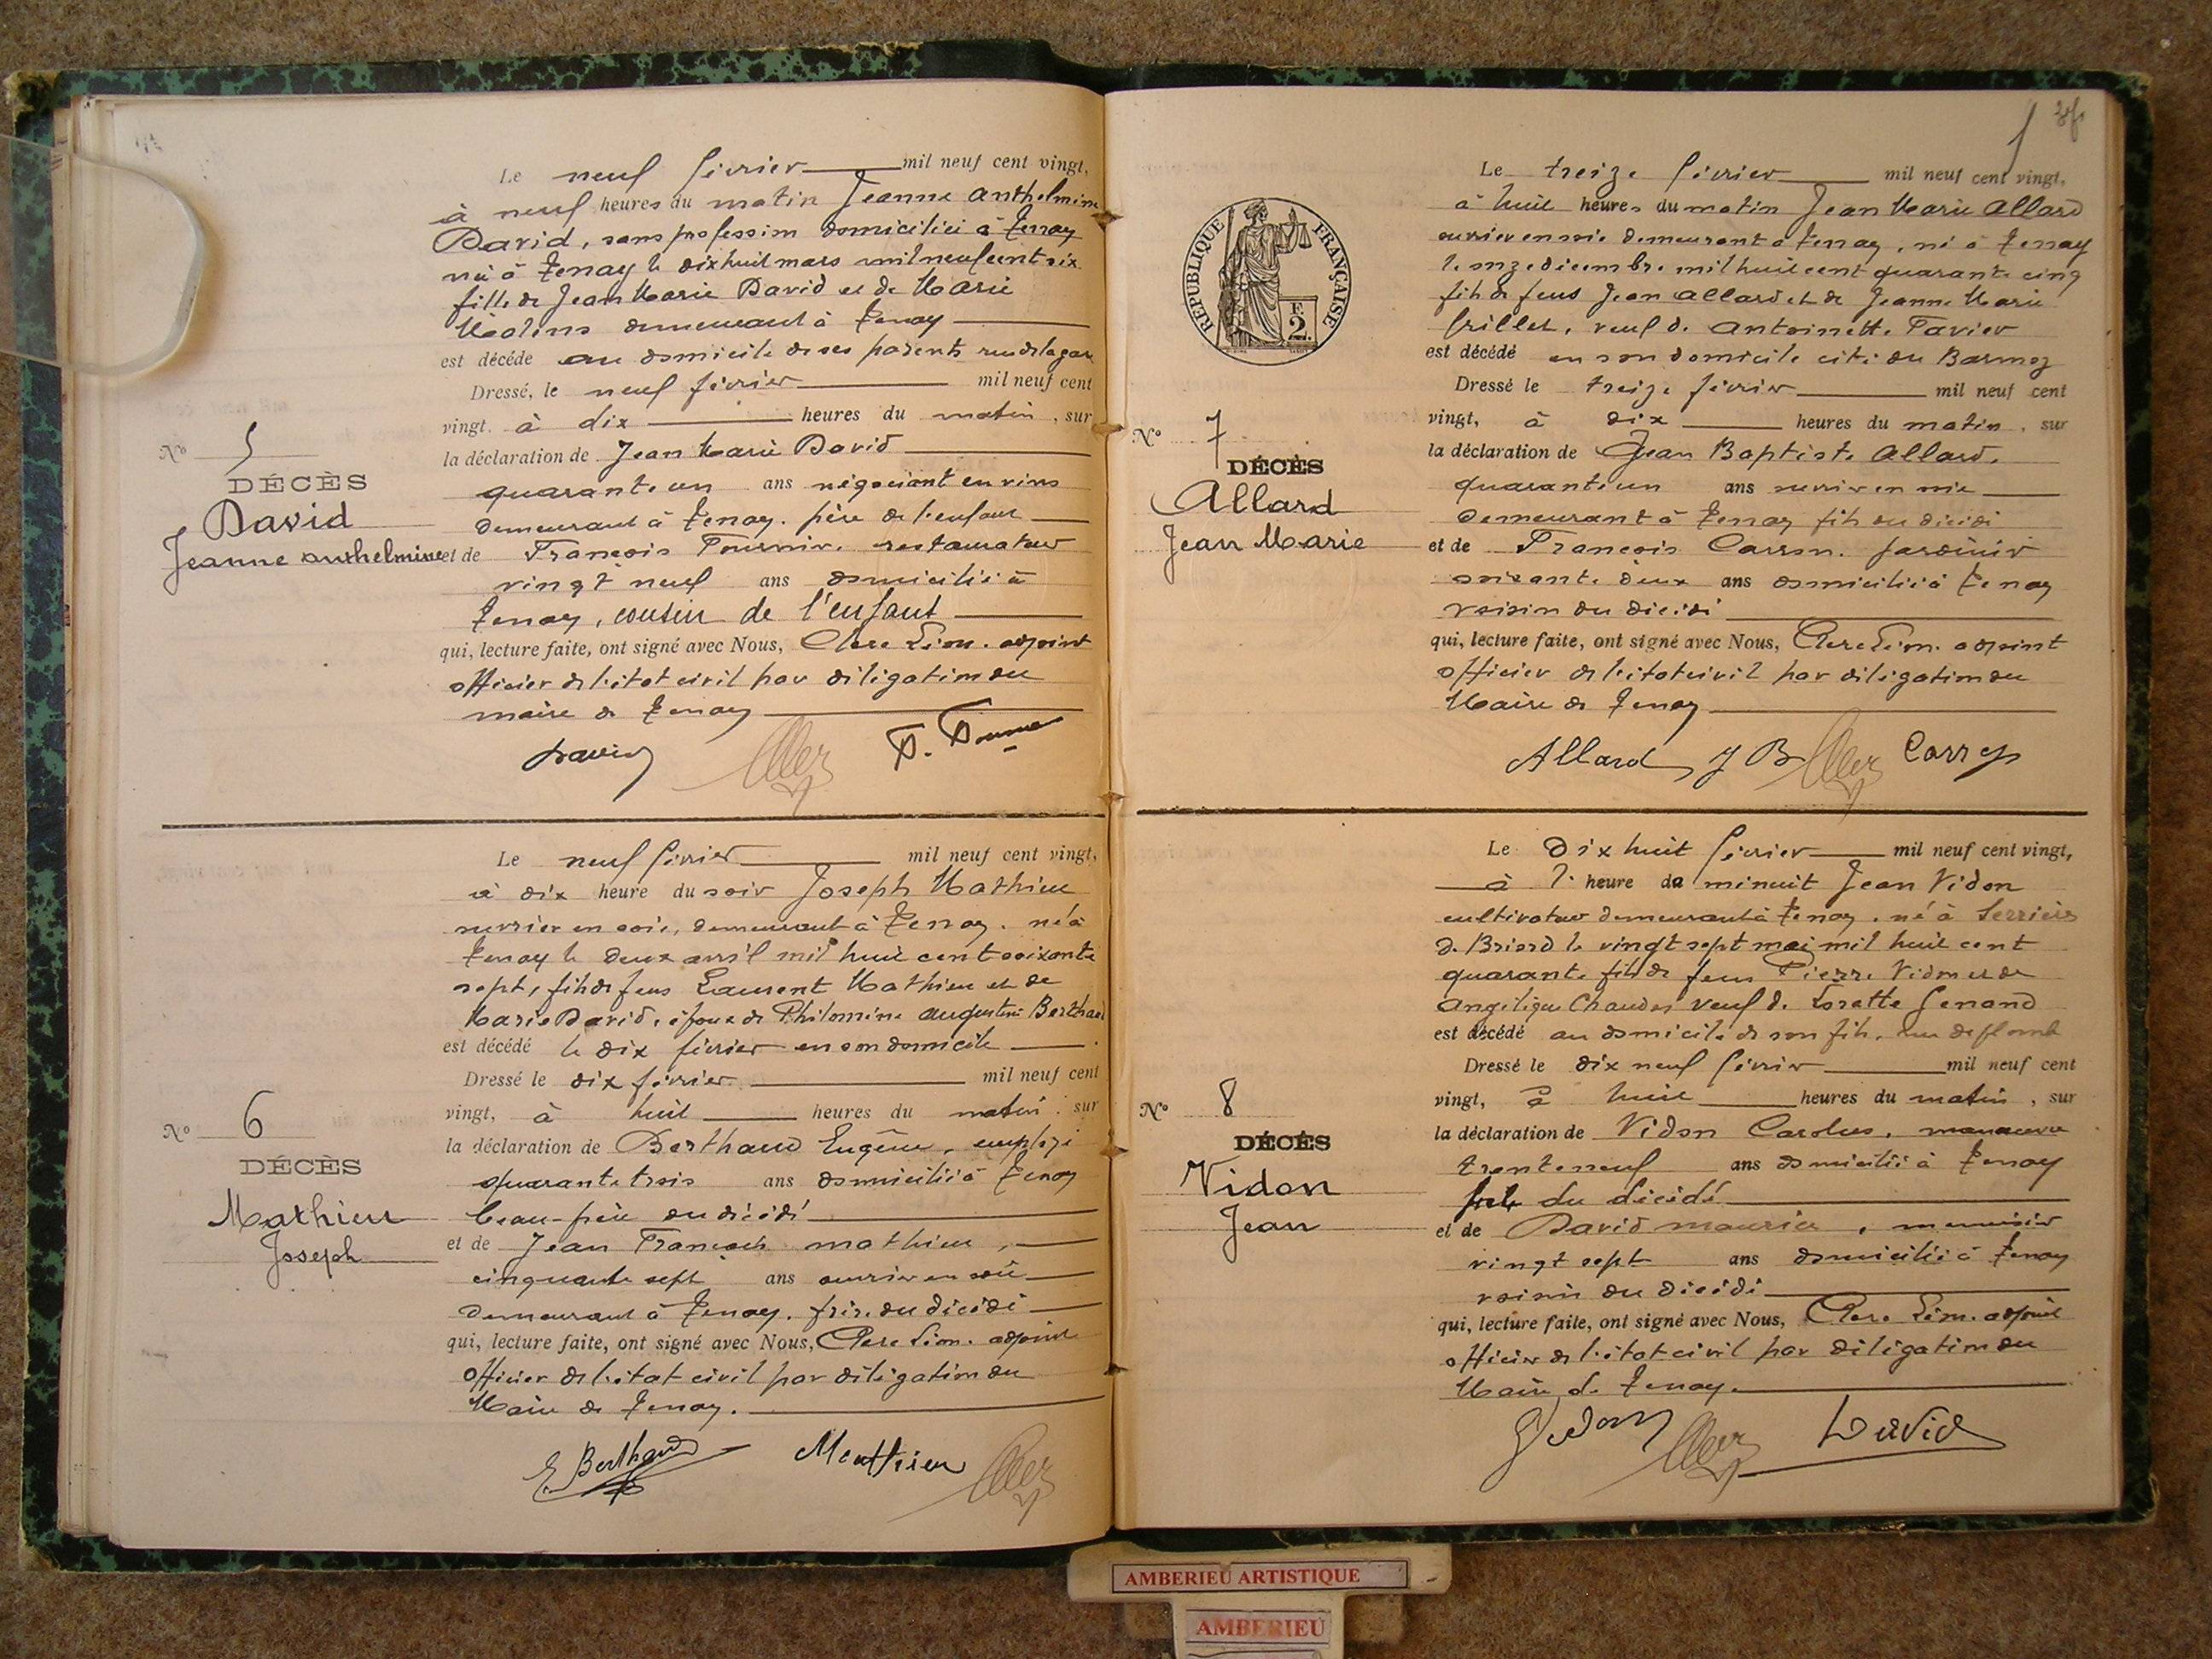 Le neuf février mil neuf cent vingt,
à neuf heures du matin Jeanne Anthelmine
David, sans profession domiciliée à Tenay
née à Tenay le dix huit mars mil neuf cent six
fille de Jean Marie David et de Marie
demeurant à Tenay
est décédé au domicile de ses parents rue de la gare
Dressé, le neuf février mil neuf cent
vingt. à dix heures du matin, sur
la déclaration de Jean Marie David
quarante un ans négociant en vins
demeurant à Tenay. père de l'enfant
et de François Fournier. restaurateur
vingt neuf ans domicilié à
Tenay, cousin de l'enfant
qui, lecture faite, ont signé avec Nous, Clerc Léon. adjoint
officier de l'état civil par délégation du
maire de Tenay
David
No 5
DÉCÈS
David
Jeanne Anthelmine
Le neuf février mil neuf cent vingt,
à dix heure du soir Joseph Mathieu
ouvrier en soie, demeurant à Tenay. né à
Tenay le deux avril mil huit cent soixante
sept, fils de feus Laurent Mathieu et de
Marie David, époux de Philomène Augustine Berthaud
est décédé le dix février en son domicile
Dressé le dix février mil neuf cent
vingt, à huit heures du matin, sur
la déclaration de Berthaud Eugène, employé
quarante trois ans domicilié à Tenay
beau-frère du décédé
et de Jean François Mathieu,
cinquante sept ans ouvrier en soie
demeurant à Tenay. frère du décédé
qui, lecture faite, ont signé avec Nous, Clerc Léon. adjoint
officier de l'état civil par délégation du
Maire de Tenay.
E. Berthaud Mathieu
No 6
DÉCÈS
Mathieu
Joseph
Le treize février mil neuf cent vingt,
à huit heures du matin Jean Marie Allard
ouvrier en soie demeurant à Tenay, né à Tenay
le onze décembre mil huit cent quarante cinq
fils de feus Jean Allard et de Jeanne Marie
Grillet, veuf de Antoinette Tavier
est décédé en son domicile cité du Barmoz
Dressé le treize février mil neuf cent
vingt, à dix heures du matin, sur
la déclaration de Jean Baptiste Allard.
quarante un ans ouvrier en soie
demeurant à Tenay fils du décédé
et de François Carron. jardinier
soixante deux ans domicilié à Tenay
voisin du décédé
qui, lecture faite, ont signé avec Nous, Clerc Léon. adjoint
officier de l'état civil par délégation du
Maire de Tenay
Allard J B
RÉPUBLIQUE FRANÇAISE
E
2.
No 7
DÉCÈS
Allard
Jean Marie
Le Dix huit février mil neuf cent vingt,
à l'heure de minuit Jean Vidon
cultivateur demeurant à Tenay. né à Serrières
de Briord le vingt sept mai mil huit cent
quarante fils de feus Pierre Vidon et de
Angélique veuf de Lorette Genand
est décédé au domicile de son fils, rue
Dressé le dix neuf février mil neuf cent
vingt, à huit heures du matin, sur
la déclaration de Vidon Carolus, manœuvre
trente neuf ans domicilié à Tenay
fils du décédé
et de David Maurice, menuisier
vingt sept ans domicilié à Tenay
voisin du décédé
qui, lecture faite, ont signé avec Nous, Clerc Léon. adjoint
officier de l'état civil par délégation du
Maire de Tenay.
Vidon David
No 8
DÉCÈS
Vidon
Jean
AMBERIEU ARTISTIQUE
AMBERIEU